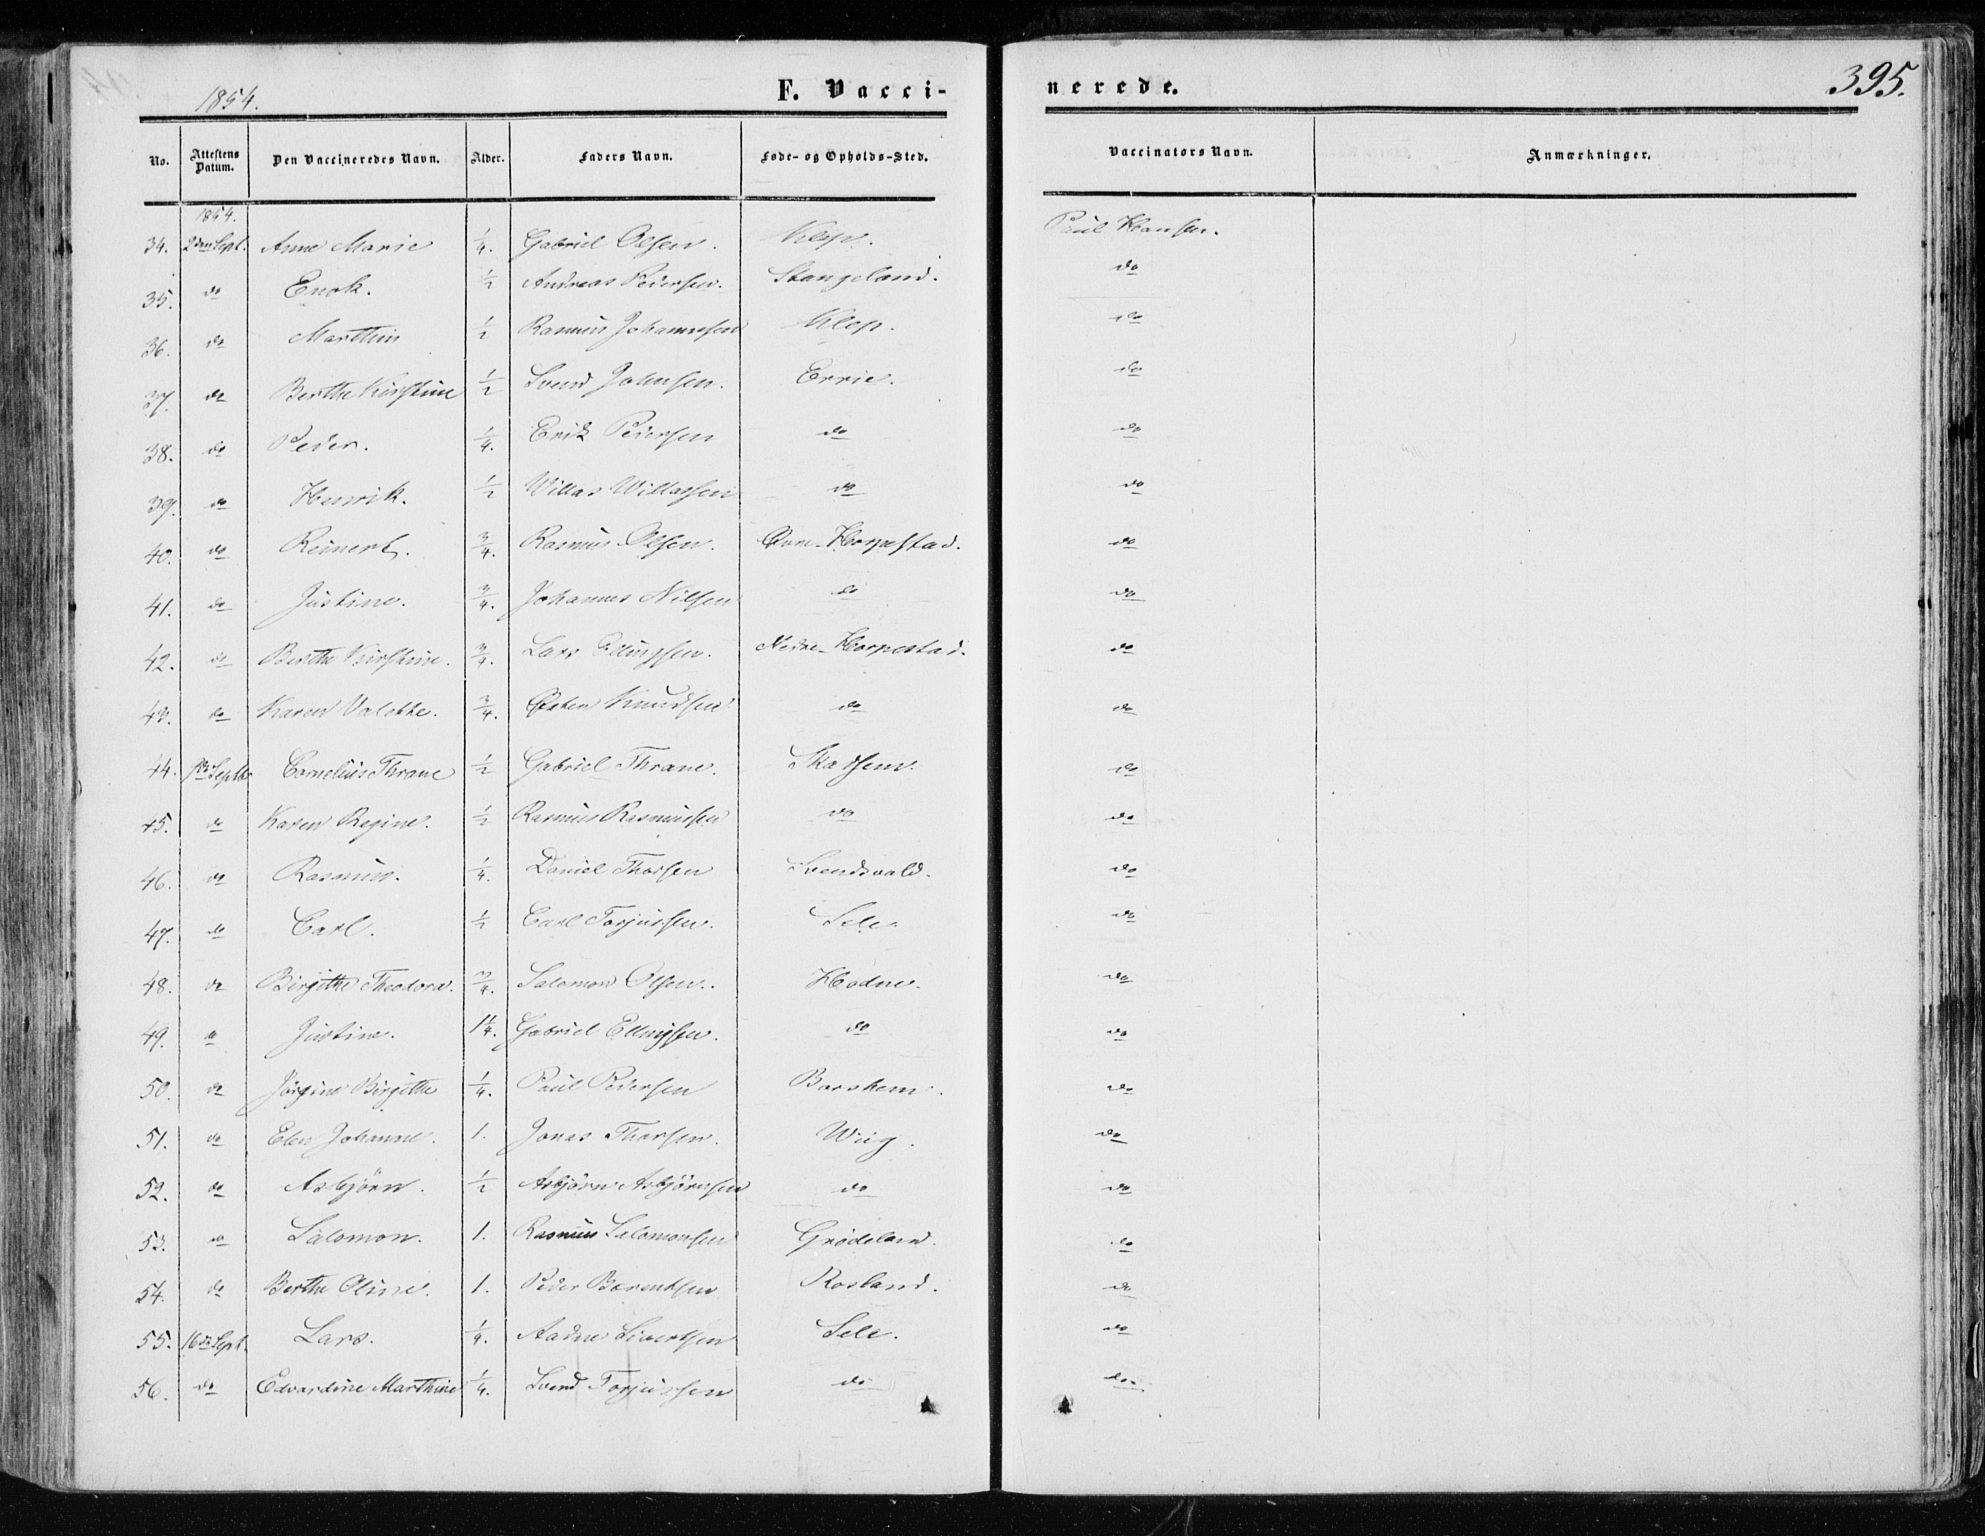 1854.
F. Vacci-
nerede.
395.
No. Attestens Datum. Den Vaccineredes Navn. Alder. Faders Navn. Føde- og Opholds-Sted. Vaccinators Navn. Anmærkninger.
1854.
34. 2den Sept. Anne Marie 1/4. Gabriel Olsen. Klep. Paul Hansen.
35. do Enok. 1/2 Andreas Pedersen. Stangeland. do
36. do Marthin 1/2 Rasmus Johannesen Klep. do
37. do Berthe Kirstine 1/2 Svend Johnsen. Errie. do
38. do Peder. 1/4. Erik Pedersen do do
39. do Henrik. 1/2 Willas Willassen do do
40. do Reinert. 3/4. Rasmus Olsen. Øvre-Horpestad. do
41. do Justine. 3/4. Johannes Nilsen do do
42. do Berthe Kirstine. 3/4. Lars Ellingsen. Nedre-Horpestad. do
43. do Karen Valette. 3/4. Østen Knudsen do do
44. Septbr Cornelius Thrane 1/2 Gabriel Thrane. Skadsem. do
45. do Karen Regine. 1/2 Rasmus Rasmussen do do
46. do Rasmus. 1/4. Daniel Thorsen Svendsvold. do
47. do Carl. 1/2 Carl Torjussen. Sele. do
48. do Birgithe Theodora. 3/4. Salomon Olsen. Hodne. do
49. do Justine. 1 1/4. Gabriel Ellingsen. do do
50. do Jørgine Birgithe 1/4. Paul Pedersen Borshem. do
51. do Elen Johanne. 1. Jonas Thorsen. Wiig. do
52. do Asbjörn. 1/2 Asbjörn Asbjörnsen do do
53. do Salomon. 1. Rasmus Salomonsen Grødeland. do
54. do Berthe Oline. 1. Peder Berentsen Rosland. do
55. 16de Sept. Lars. 1/4. Aadne Sivertsen Sele. do
56. do Edvardine Marthine 1/4. Svend Torjussen do do